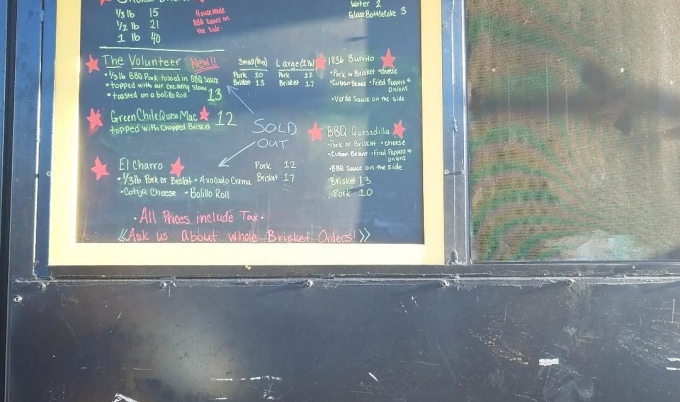 1/3 lb 15
1/2 lb 21
1 lb 40
House made
BBQ Sauce on
the Side
Water 2
Glass Bottle Coke 3
The Volunteer New!!!
• 1/3 lb BBQ Pork tossed in BBQ Sauce
• topped with our creamy slaw
• toasted on a bolillo Roll 13
Small Large
Pork 10 Pork 12
Brisket 13 Brisket 17
1836 Burrito
• Pork or Brisket • cheese
• Cuban Beans • Fried Peppers &
Onions
• Verde Sauce on the side
Green Chile Queso Mac 12
topped with Chopped Brisket
SOLD
OUT
BBQ Quesadilla
• Pork or Brisket • cheese
• Cuban Beans • Fried Peppers &
onions
• BBQ Sauce on the side
Brisket 13
Pork 10
El Charro
• 1/3 lb Pork or Brisket • Avocado Crema
• Cotija Cheese • Bolillo Roll
Pork 12
Brisket 17
• All Prices include Tax •
«Ask us about whole Brisket Orders!»